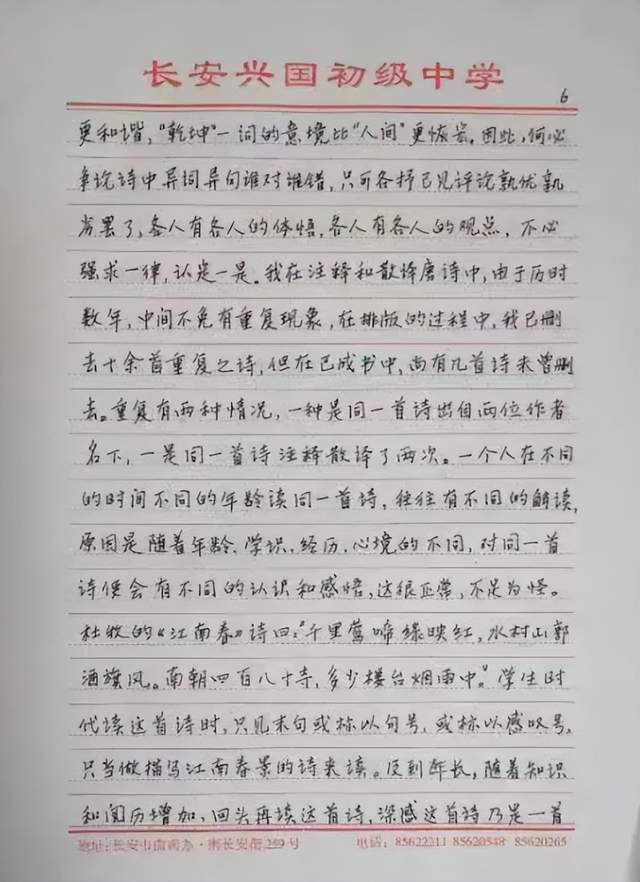 长安兴国初级中学
6
更和谐，"乾坤"一词的意境比"人间"更恢宏。因此，何必
争论诗中异词异句谁对谁错，只可各抒己见评论孰优孰
劣罢了，各人有各人的体悟，各人有各人的观点，不必
强求一律，认定一是。我在注释和散译唐诗中，由于历时
数年，中间不免有重复现象，在排版的过程中，我已删
去十余首重复之诗，但在已成书中，尚有几首诗未曾删
去。重复有两种情况，一种是同一首诗出自两位作者
名下，一是同一首诗注释散译了两次。一个人在不同
的时间不同的年龄读同一首诗，往往有不同的解读，
原因是随着年龄、学识、经历、心境的不同，对同一首
诗便会有不同的认识和感悟，这很正常，不足为怪。
杜牧的《江南春》诗曰："千里莺啼绿映红，水村山郭
酒旗风。南朝四百八十寺，多少楼台烟雨中。"学生时
代读这首诗时，只见末句或标以句号，或标以感叹号，
只当做描写江南春景的诗来读。及到年长，随着知识
和阅历增加，回头再读这首诗，深感这首诗乃是一首
地址：长安市南长安街259号
电话：85622211 85620548 85620265